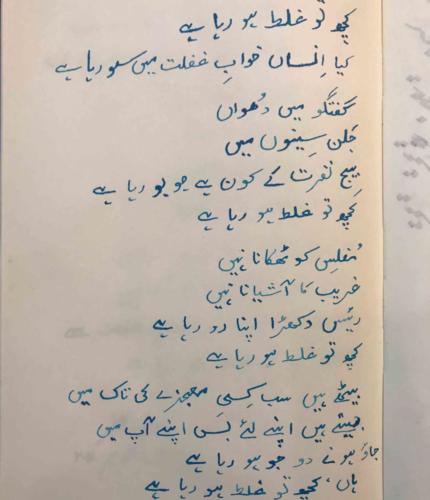 کچھ تو غلط ہو رہا ہے
کیا اِنسان خوابِ غفلت میں سو رہا ہے
گفتگو میں دُھواں
جلن سِینوں میں
بیج نفرت کے کون ہے جو بو رہا ہے
کچھ تو غلط ہو رہا ہے
مُفلِس کو ٹھکانا نہیں
غریب کا آشیانا نہیں
رئیس دُکھڑا اپنا رو رہا ہے
کچھ تو غلط ہو رہا ہے
بیٹھے ہیں سب کِسی معجزے کی تاک میں
جیتے ہیں اپنے لئے بَس اپنے آپ میں
جاؤ ہونے دو جو ہو رہا ہے
ہاں، کچھ تو غلط ہو رہا ہے